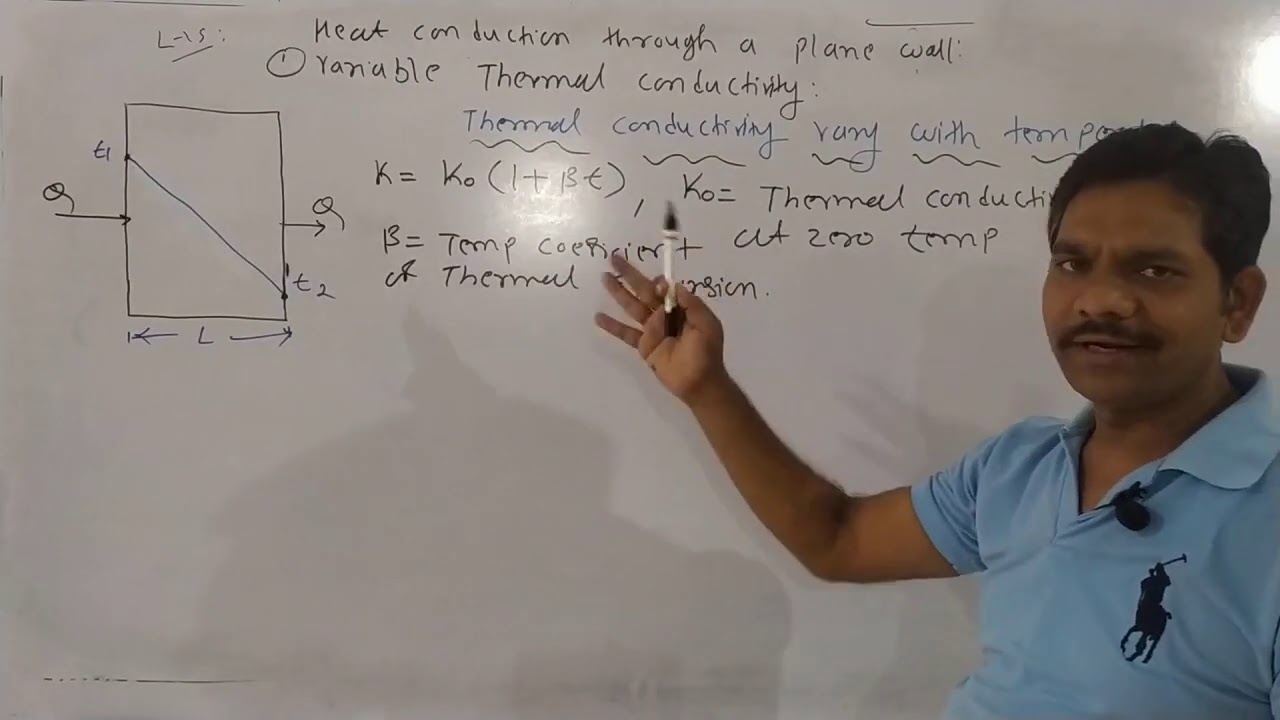 L-15:
Heat conduction through a plane wall:
① Variable Thermal conductivity:
Thermal conductivity vary with
K = K₀ (1 + βt), K₀ = Thermal
at zero temp
β = Temp coefficient
of Thermal
t₁
Q
Q
t₂
L